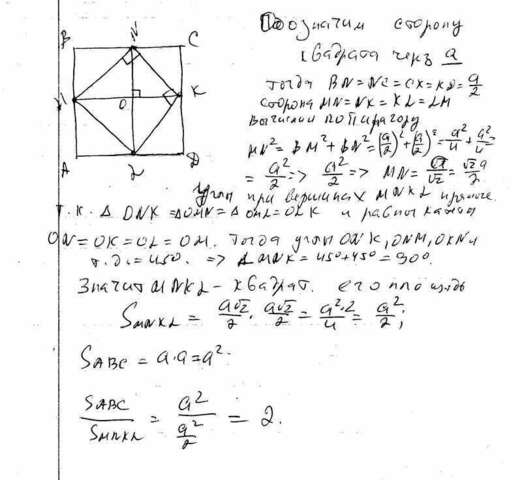 B N C
M O K
A L D
Обозначим сторону
квадрата через a
тогда BN = NC = CK = KD = a/2
сторона MN = NK = KL = LM
Вычислим по Пифагору
MN² = BM² + BN² = (a/2)² + (a/2)² = a²/4 + a²/4 =
= a²/2 => a²/2 => MN = a/√2 = √2a/2
Углы при вершинах MNKL прямые
т.к. Δ ONK = ΔOMN = Δ OML = OLK и равны катеты
ON = OK = OL = OM. Тогда углы ONK, ONM, OKN и
т.д. = 45°. => ∠MNK = 45°+45° = 90°.
Значит MNKL - квадрат. его площадь
S MNKL = a√2/2 · a√2/2 = a²·2/4 = a²/2;
S ABC = a·a = a².
S ABC / S MNKL = a² / (a²/2) = 2.